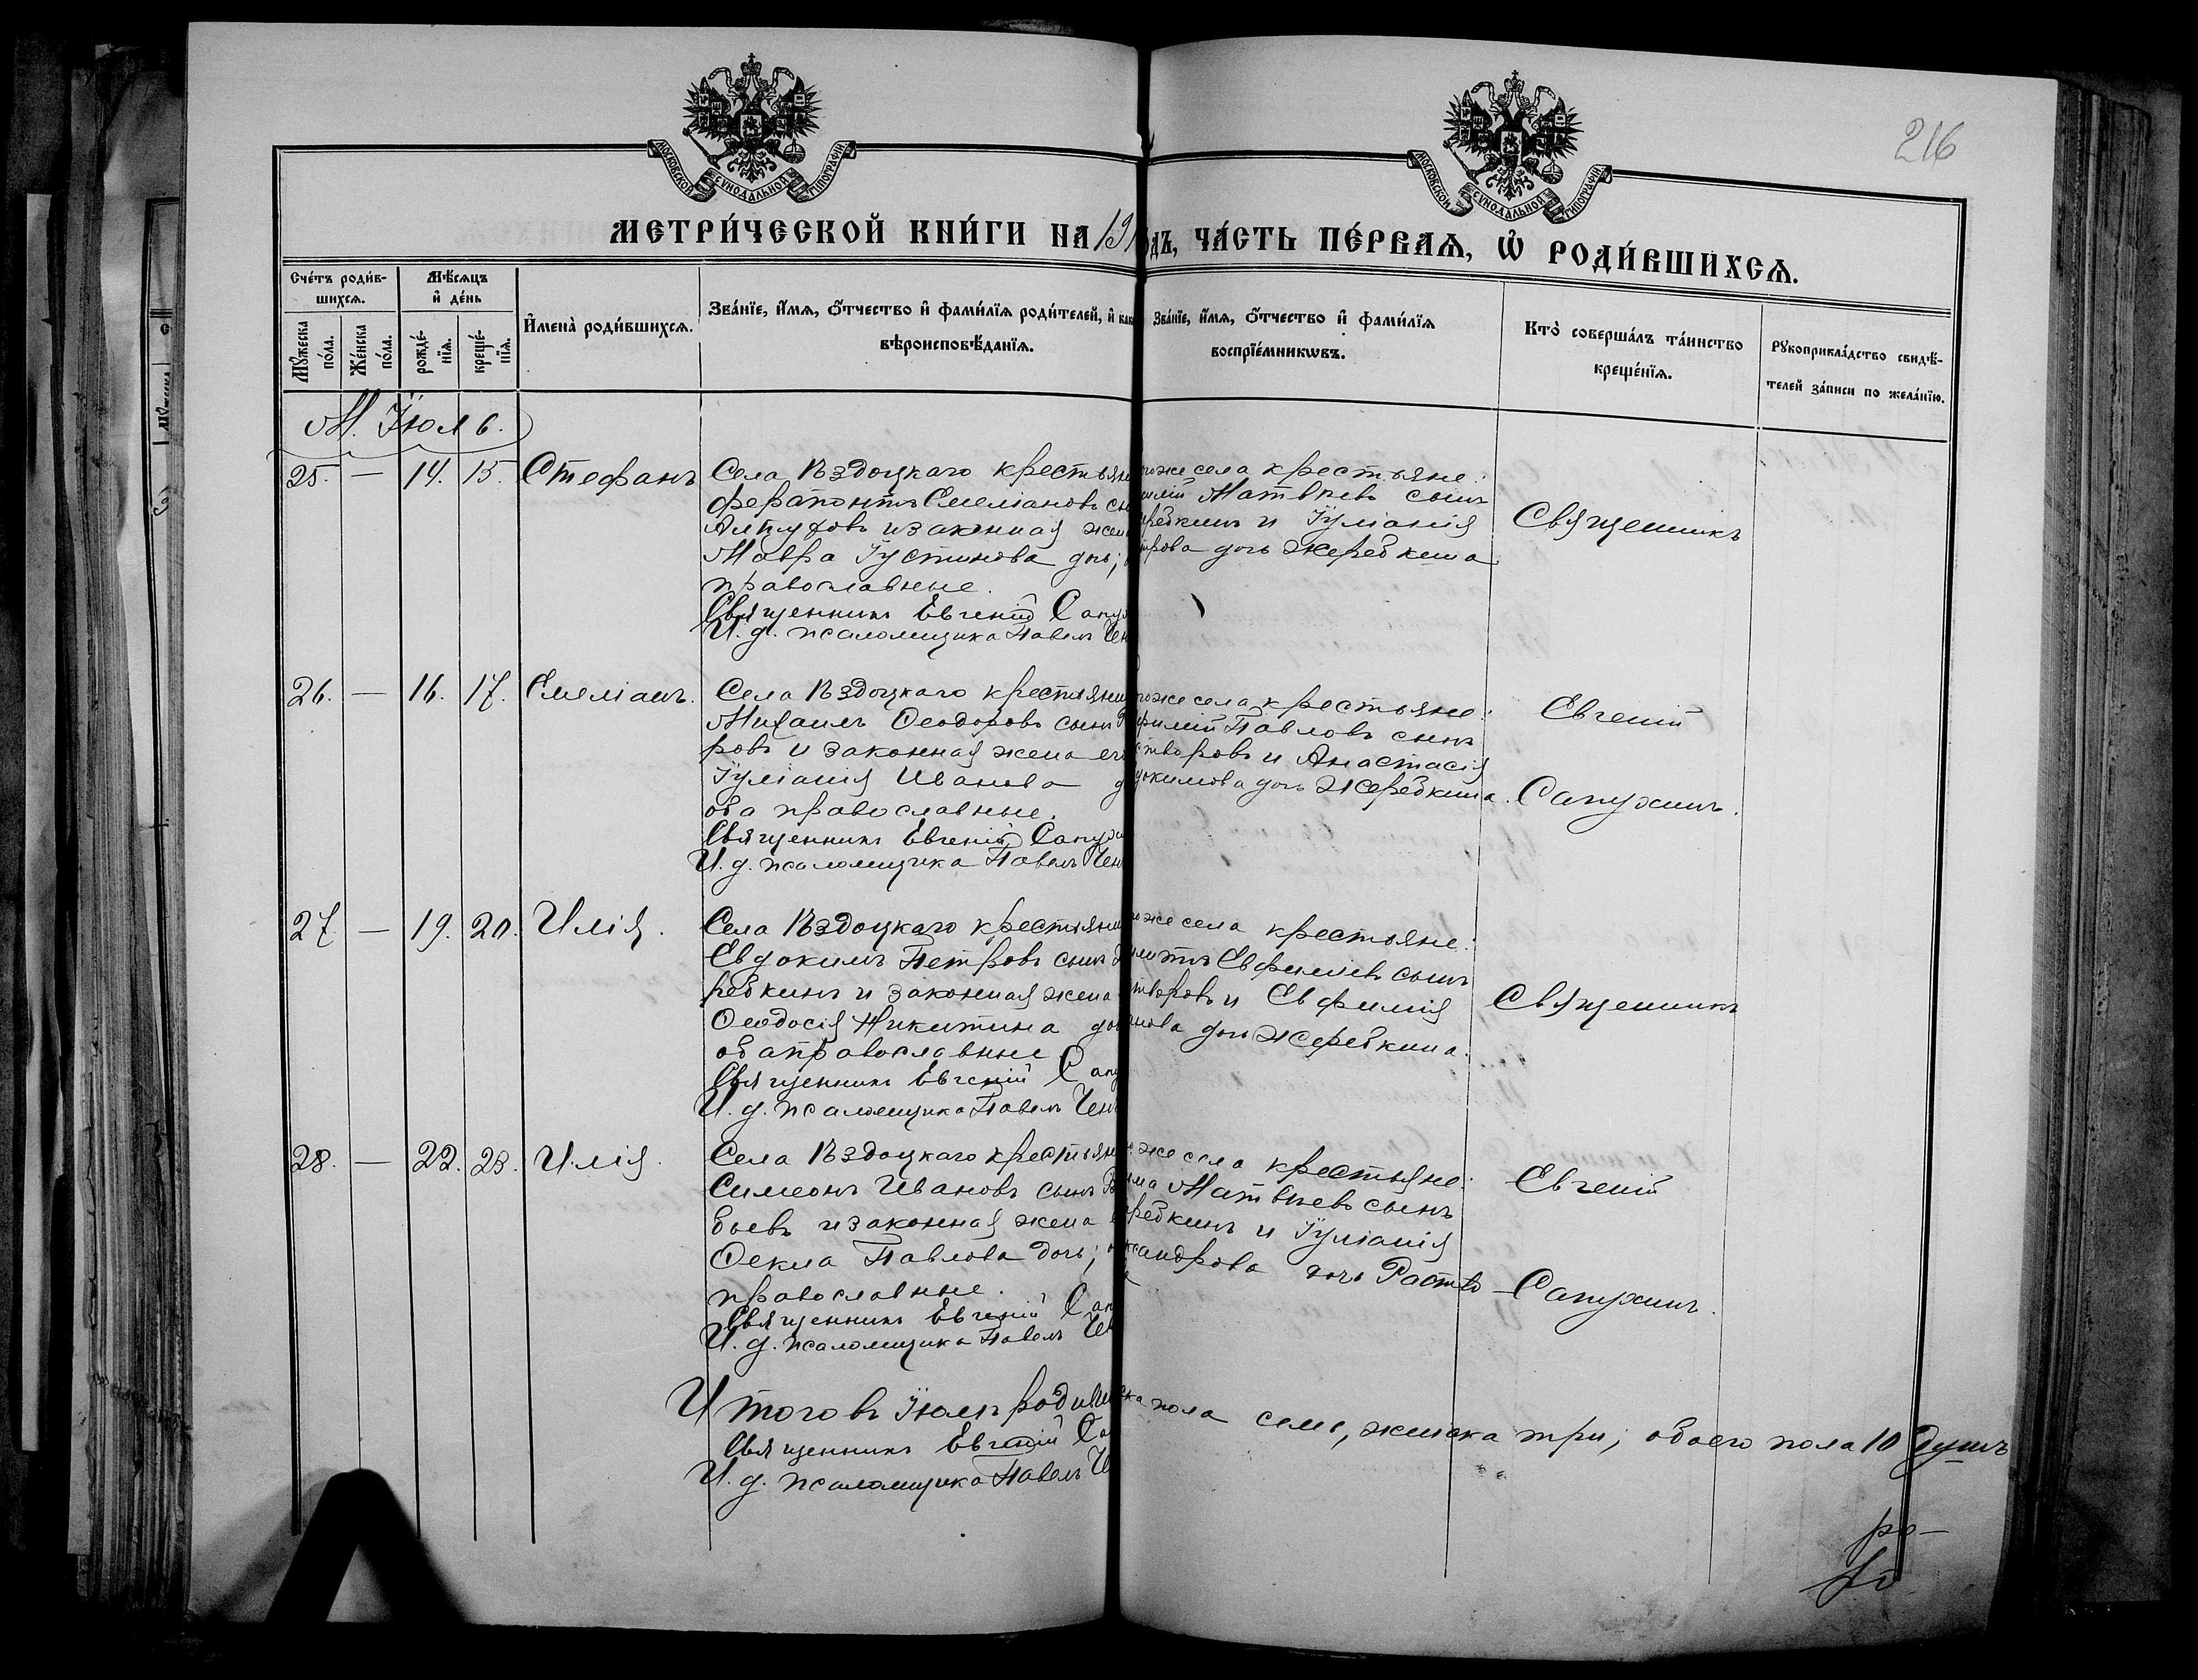 МОСКОВСКОЙ СѴНОДАЛЬНОЙ ТИПОГРАФІИ
МОСКОВСКОЙ СѴНОДАЛЬНОЙ ТИПОГРАФІИ
216
МЕТРИ́ЧЕСКОЙ КНИ́ГИ НА 19
ДЪ, ЧА́СТЬ ПЕ́РВАЯ, Ѡ҆ РОДИ́ВШИХСЯ.
Сче́тъ роди́в-
шихся.
Мѣ́сяцъ
и҆ де́нь
Мꙋ́жеска
по́ла.
Же́нска
по́ла.
рожде́-
нїя.
креще́-
нїя.
И҆мена̀ роди́вшихся.
Зва́нїе, и҆́мя, ѻ҆́тчество и҆ фами́лїя роди́телей, и҆ как
вѣроисповѣ́данїя.
Зва́нїе, и҆́мя, ѻ҆́тчество и҆ фами́лїя
воспрїе́мникѡвъ.
Кто̀ соверша́лъ та́инство
креще́нїя.
Рꙋкоприкла́дство свидѣ́-
телей за́писи по жела́нїю.
М. Іюль.
25. — 14. 15. Стефанъ
Села Вздоцкаго крестьян
Ферапонтъ Емеліановъ сы
Алпуховъ и законная жен
Мавра Іустинова дочь;
православные.
Священникъ Евгеній Сапу
И. д. псаломщика Павелъ Чен
гоже села крестьяне:
Матвѣевъ сынъ
ребкинъ и Іуліанія
трова дочь Жеребкина
Священникъ
26. — 16. 17. Емеліанъ.
Села Вздоцкаго крестьяни
Михаилъ Ѳеодоровъ сынъ
ровъ и законная жена его
Іуліанія Иванова д
оба православные.
Священникъ Евгеній Сапух
И. д. псаломщика Павелъ Чен
гоже села крестьяне:
фимій Павловъ сынъ
створовъ и Анастасія
докимова дочь Жеребкина.
Евгеній
Сапухинъ.
27. — 19. 20. Илія.
Села Вздоцкаго крестьяни
Евдокимъ Петровъ сынъ
ребкинъ и законная жена
Ѳеодосія Никитина доч
оба православные
Священникъ Евгеній Сапу
И. д. псаломщика Павелъ Чен
гоже села крестьяне:
Евфиміевъ сынъ
створовъ и Евфимія
анова дочь Жеребкина.
Священникъ
28. — 22. 23. Илія.
Села Вздоцкаго крестьян
Симеонъ Ивановъ сынъ
боевъ и законная жена
Ѳекла Павлова дочь;
православные.
Священникъ Евгеній Сап
И. д. псаломщика Павелъ Чен
же села крестьяне:
Матвѣевъ сынъ
ребкинъ и Іуліанія
ксандрова дочь Раство
Евгеній
Сапухинъ.
Итого въ Іюлѣ родивши
ска пола семь, женска три; обоего пола 10 душъ
Священникъ Евгеній Са
И. д. псаломщика Павелъ Че